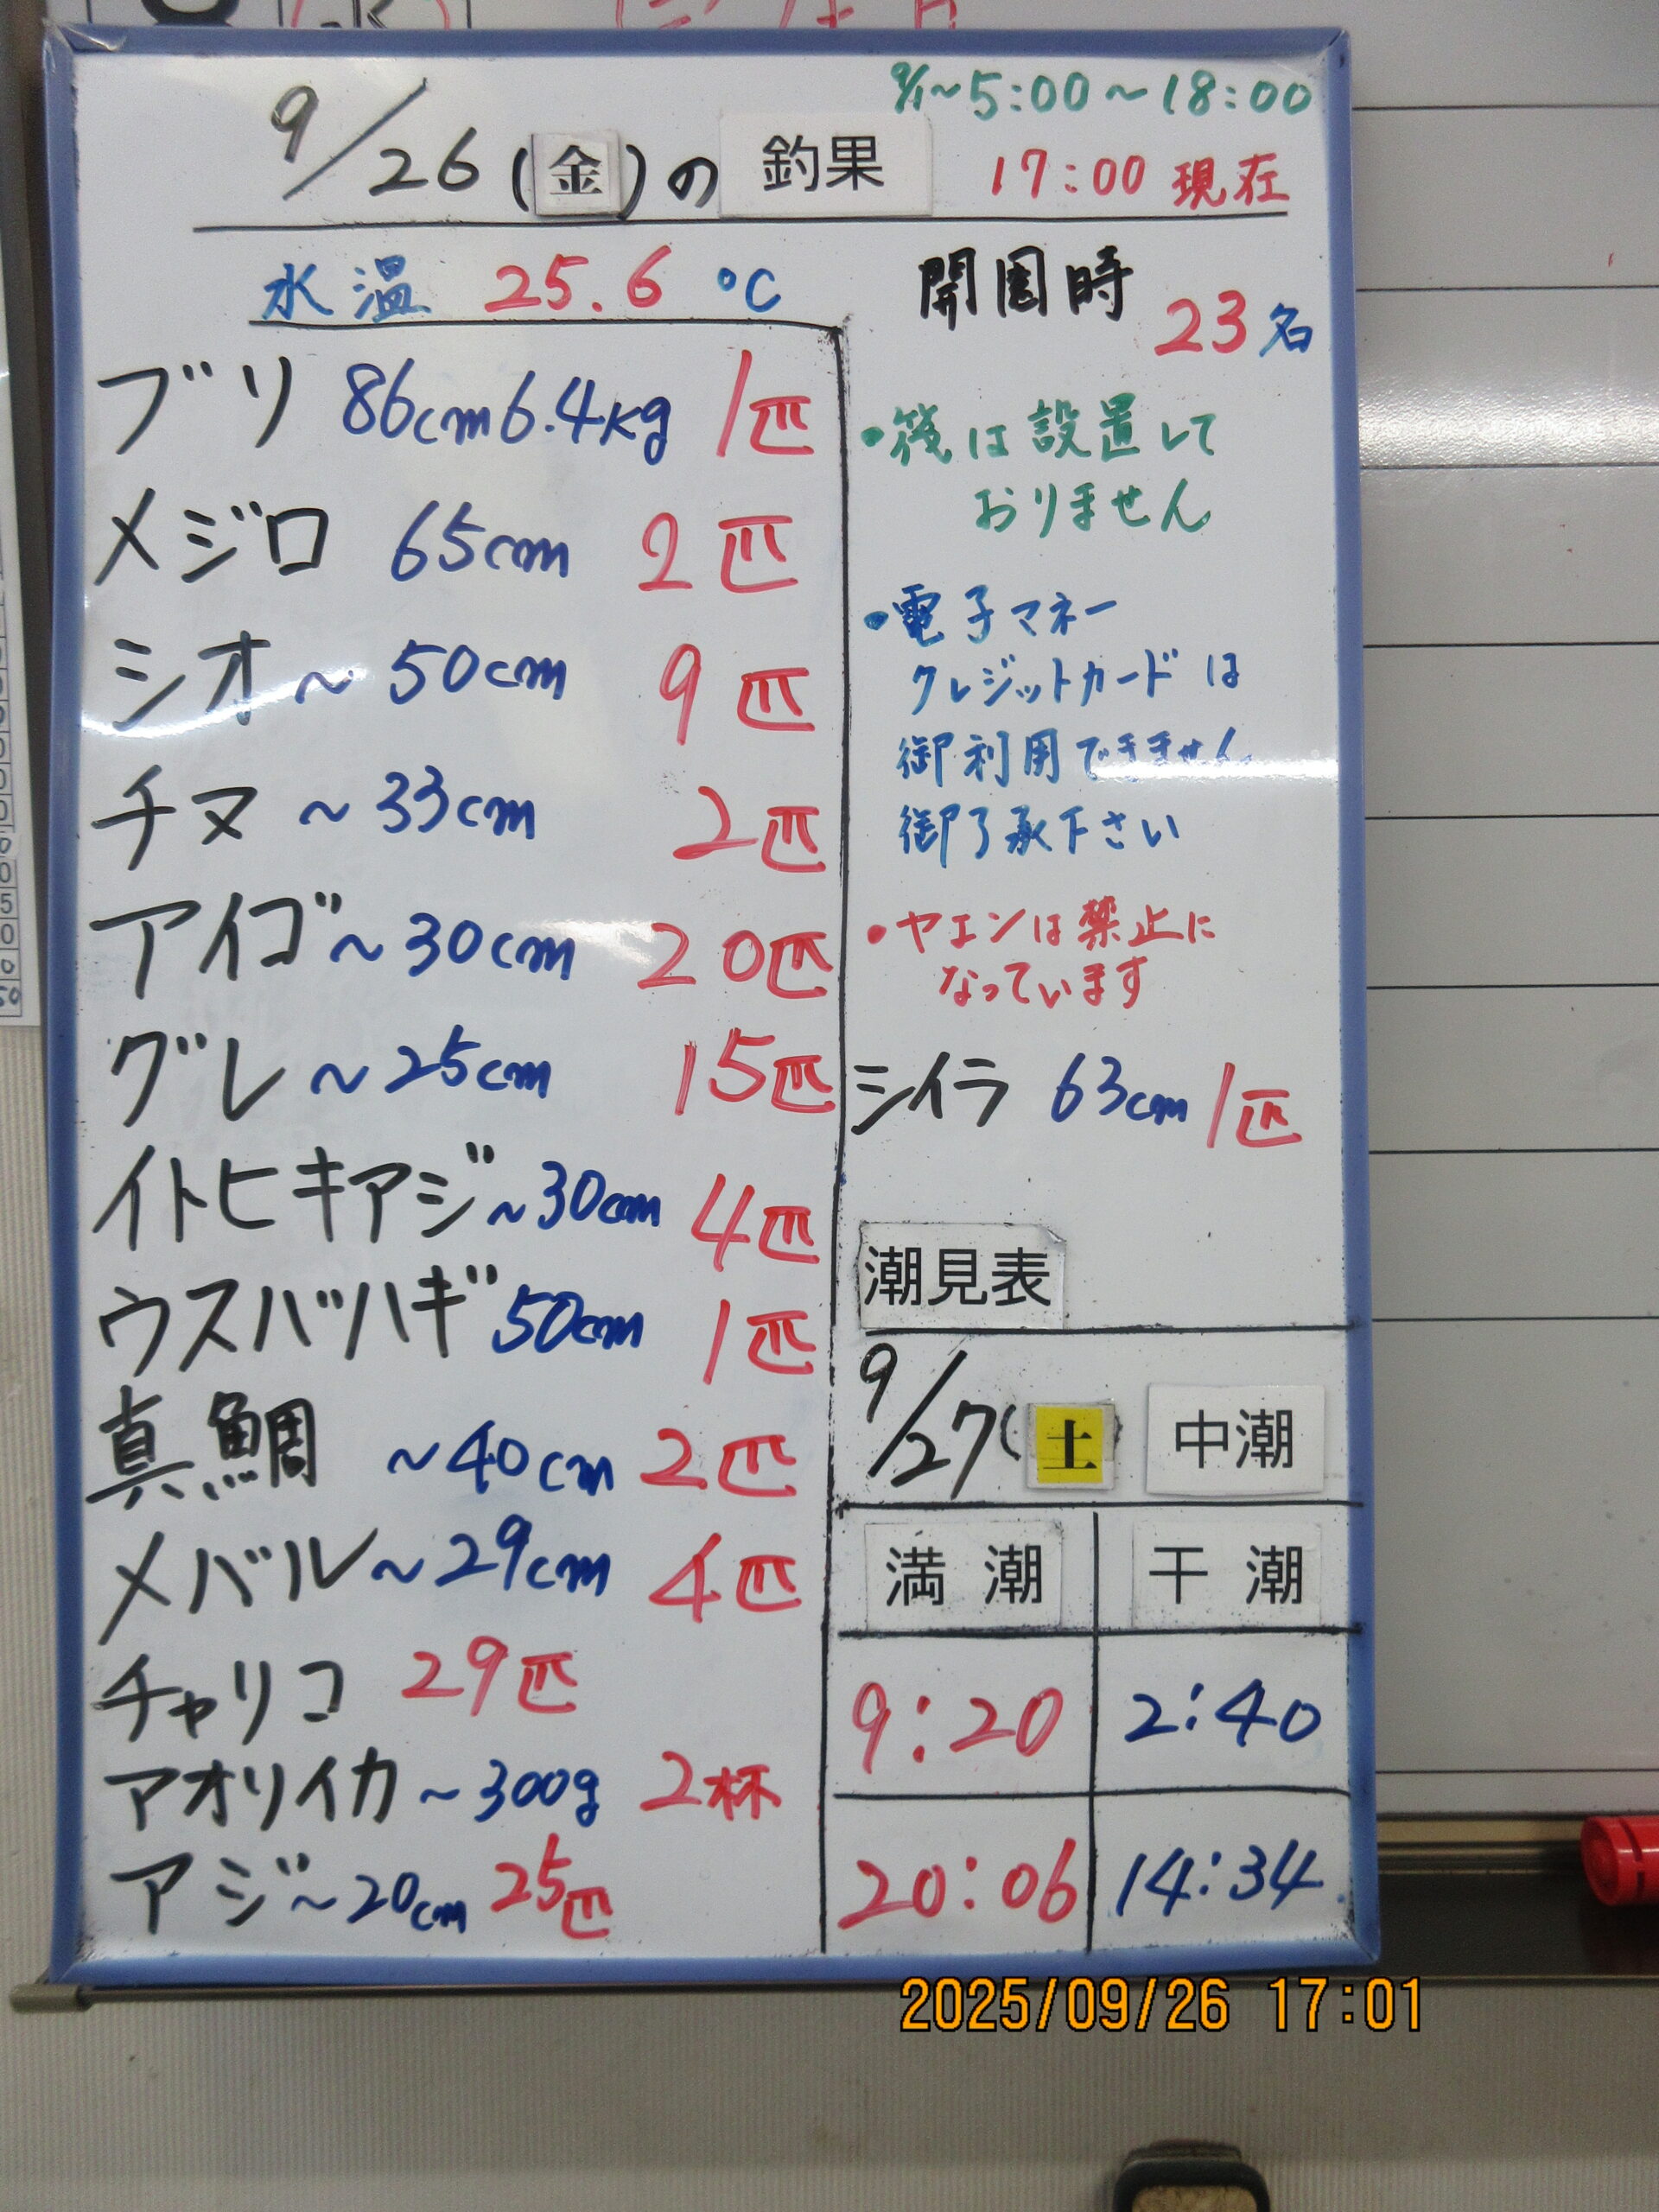 9/1~5:00~18:00
9/26(金)の 釣果 17:00 現在
水温 25.6 ℃
ブリ 86cm 6.4Kg 1匹
メジロ 65cm 2匹
シオ ~50cm 9匹
チヌ ~33cm 2匹
アイゴ ~30cm 20匹
グレ ~25cm 15匹
イトヒキアジ ~30cm 4匹
ウスバハギ 50cm 1匹
真鯛 ~40cm 2匹
メバル ~29cm 4匹
チャリコ 29匹
アオリイカ ~300g 2杯
アジ ~20cm 25匹
開園時 23名
・筏は設置して
おりません
・電子マネー
クレジットカードは
御利用できません
御了承下さい
・ヤエンは禁止に
なっています
シイラ 63cm 1匹
潮見表
9/27(土 中潮
満潮 干潮
9:20 2:40
20:06 14:34
2025/09/26 17:01